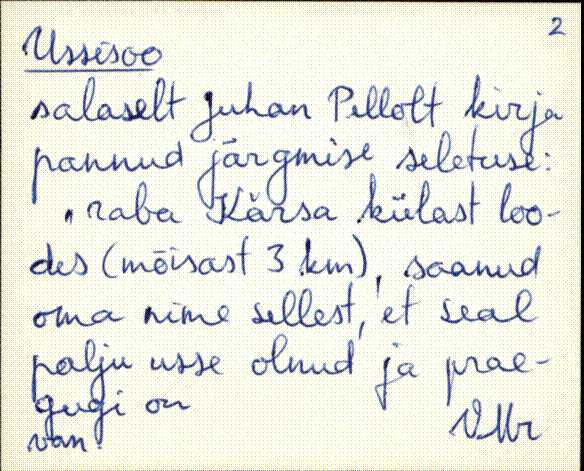 2
Ussisoo
salaselt Juhan Pellolt kirja
pannud järgmise seletuse:
"raba Kärsa külast loo-
des (mõisast 3 km), saanud
oma nime sellest, et seal
palju usse olnud ja prae-
gugi on